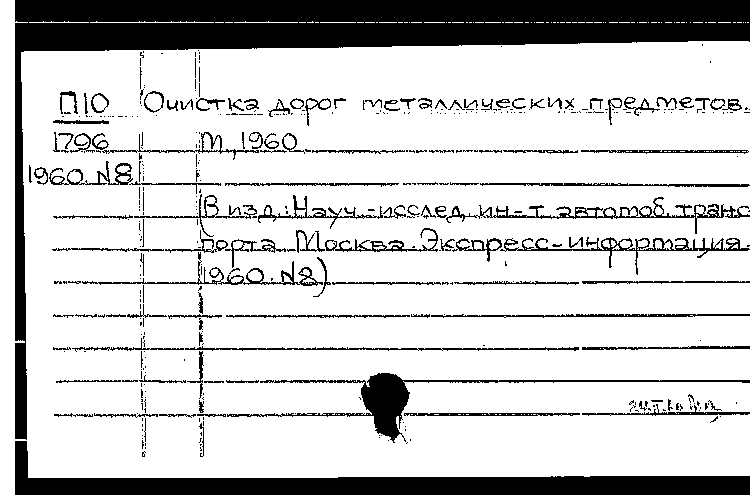 П10 Очистка дорог металлических предметов.
1796 М., 1960
1960. N8.
(В изд.: Науч.-исслед. ин-т автомоб. транс
порта. Москва. Экспресс-информация.
1960. N8)